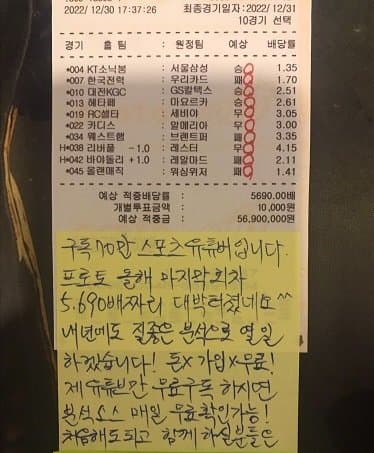 2022/12/30 17:37:26 최종경기일자:2022/12/31
10경기 선택
경기 홈 팀 : 원정팀 예상 배당률
*004 KT소닉붐 : 서울삼성 승 1.35
*007 한국전력 : 우리카드 패 1.70
*010 대전KGC : GS칼텍스 승 2.51
*013 헤타페 : 마요르카 승 2.61
*019 RC셀타 : 세비야 무 3.05
*022 카디스 : 알메리아 무 3.00
*034 웨스트햄 : 브렌트퍼 패 3.35
H*038 리버풀 -1.0 : 레스터 무 4.15
H*042 바야돌리 +1.0 : 레알마드 패 2.11
*045 올랜매직 : 워싱위저 패 1.41
예상 적중배당률 : 5690.00배
개별투표금액 : 10,000원
예상 적중금 : 56,900,000원
구독 70만 스포츠유튜버입니다.
프로토 올해 마지막회차
5.690배짜리 대박터졌네요^^
내년에도 질좋은 분석으로 열일
하겠습니다! 돈X 가입X무료!
제 유튜브만 무료구독 하시면
분석소스 매일 무료확인가능!
처음해도되고 함께 하실분들은